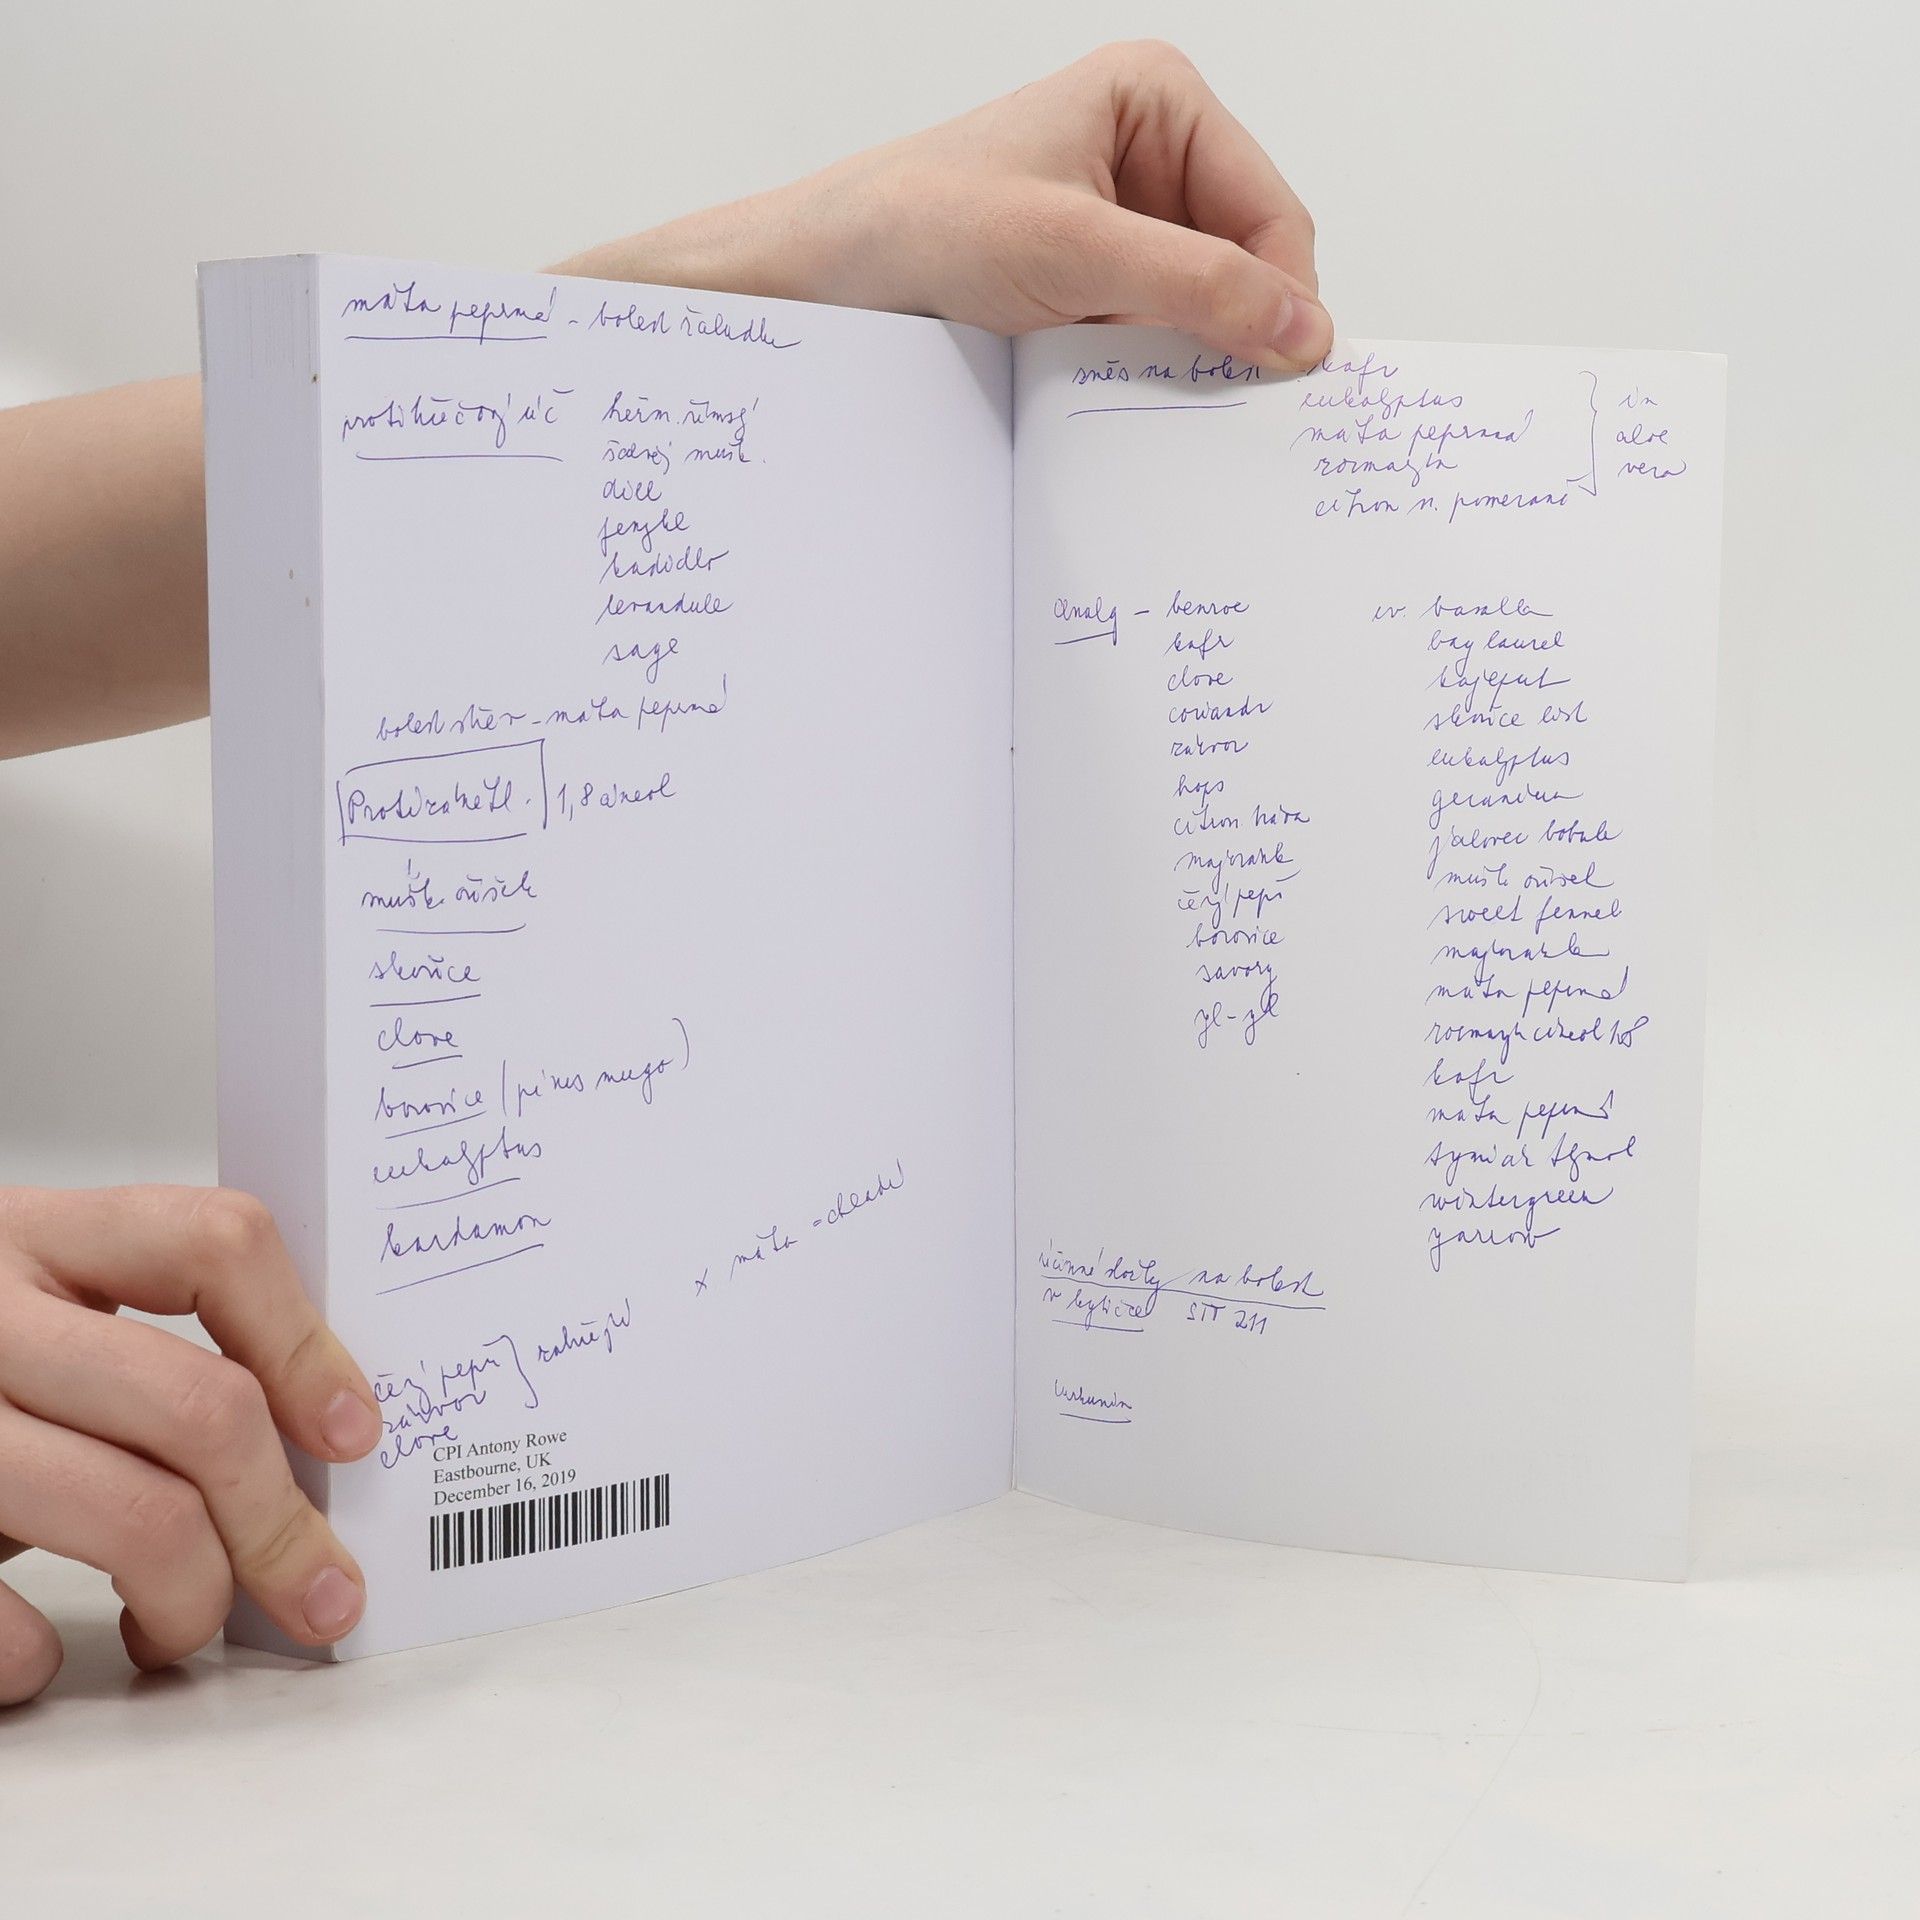 máta peprná - bolest žaludku
protikřečový úč
heřm. římský
šalvěj mušk.
dill
fenykl
kadidlo
levandule
sage
bolest střev - máta peprná
Protizánětl. 1,8 cineol
mušk. oříšek
skořice
clove
borovice (pinus mugo)
eukalyptus
kardamon
x máta = chladí
čer. pepř
zázvor
clove
zahřejí
CPI Antony Rowe
Eastbourne, UK
December 16, 2019
směs na bolest - kafr
eukalyptus
máta peprná
rozmarýn
citron n. pomeranč
in
aloe
vera
analg - benzoe
kafr
clove
coriandr
zázvor
hops
citron. tráva
majoránk
čer. pepř
borovice
savory
yl-yl
bazalka
bay laurel
kajeput
skořice list
eukalyptus
geranium
jalovec bobule
mušk oříšek
sweet fennel
majoránka
máta peprná
rozmarýn cineol 1,8
kafr
máta peprná
tymián tymol
wintergreen
yarrow
účinné složky na bolest
v kytičce STT 211
kurkumin